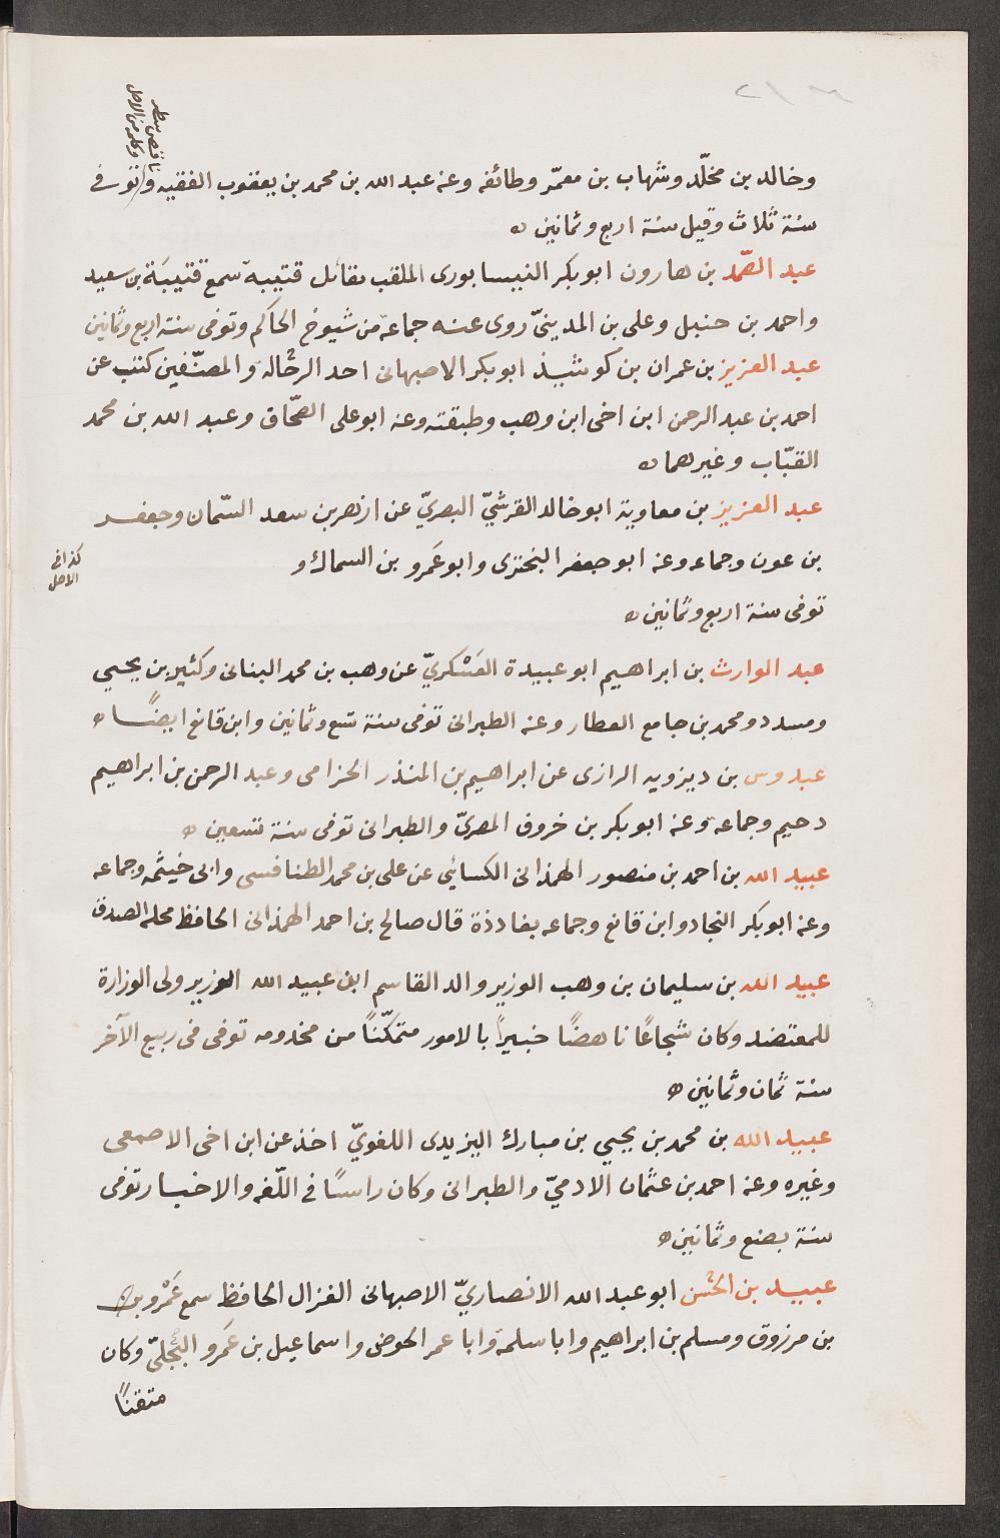 ناقص سطر
وكلمه من الاصل
وخالد بن مخلّد وشهاب بن معمّر وطائفه وعنه عبد الله بن محمد بن يعقوب الفقيه وتوفى
سنة ثلاث وقيل سنة اربع وثمانين ه
عبد الصّمد بن هارون ابو بكر النيسابورى الملقب بقاتل قتيبة سمع قتيبَة بن سعيد
واحمد بن حنبل وعلى بن المدينىّ روى عنه جماعة من شيوخ الحاكم وتوفى سنة اربع وثمانين
عبد العزيز بن عمران بن كوشيذ ابو بكر الاصبهانى احد الرحّالة والمصنّفين كتب عن
احمد بن عبد الرحمن ابن اخى ابن وهب وطبقته وعنه ابو على الصحّاف وعبد الله بن محمد
القبّاب وغيرهما ه
عبد العزيز بن معاوية ابو خالد القرشىّ البصرىّ عن ازهر بن سعد السّمان وجعفر
بن عون وجماعه وعنه ابو جعفر البخترى وابو عَمرو بن السماك و
كذا فى
الاصل
توفى سنة اربع وثمانين ه
عبد الوارث بن ابراهيم ابو عبيدة العَسْكرىّ عن وهب بن محمد البنانى وكثير بن يحيى
ومسدد ومحمد بن جامع العطار وعنه الطبرانى توفى سنة تسع وثمانين وابن قانع ايضًا ه
عبدوس بن ديزويه الرازى عن ابراهيم بن المنذر الحزامى وعبد الرحمن بن ابراهيم
دحيم وجماعه وعنه ابو بكر بن خروف المصرىّ والطبرانى توفى سنة تسعين ه
عبيد الله بن احمد بن منصور الهمذانى الكسائي عن على بن محمد الطنافسى وابى خيثمه وجماعه
وعنه ابو بكر النجاد وابن قانع وجماعه بغاددة قال صالح بن احمد الهمذانى الحافظ محله الصدق
عبيد الله بن سليمان بن وهب الوزير والد القاسم ابن عبيد الله الوزير ولى الوزارة
للمعتضد وكان شجاعًا ناهضًا خبيرًا بالامور متمكّنًا من مخدومه توفى فى ربيع الآخر
سنة ثمان وثمانين ه
عبيد الله بن محمد بن يحيى بن مبارك اليزيدى اللغوىّ اخذ عن ابن اخى الاصمعى
وغيره وعنه احمد بن عثمان الادمىّ والطبرانى وكان راسًا فى اللّغه والاخبار توفى
سنة بضع وثمانين ه
عبيد بن الحسن ابو عبد الله الانصارىّ الاصبهانى الغزال الحافظ سمع عَمْرو بن
بن مرزوق ومسلم بن ابراهيم وابا سلمه وابا عمر الحوض واسماعيل بن عَمرو البَجَلىّ وكان
متقنًا